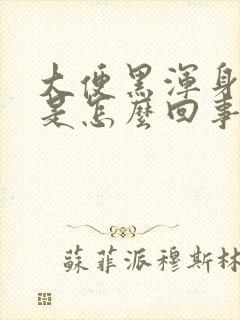 大便黑渾身
是怎麼回事
蘇菲派穆斯林